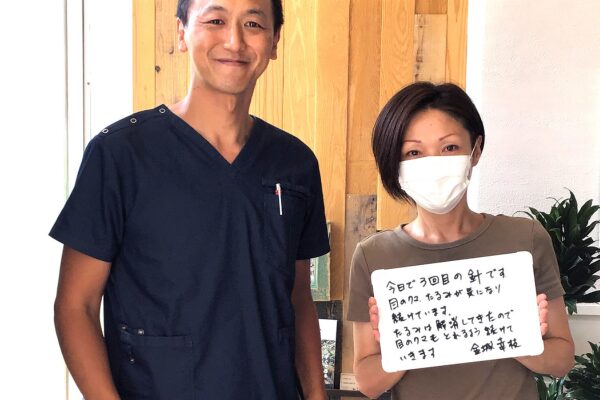 今日で3回目の針です
目のクマ、たるみが気になり
続けています。
たるみは解消してきたので
目のクマもとれるよう続けて
いきます 金城幸枝